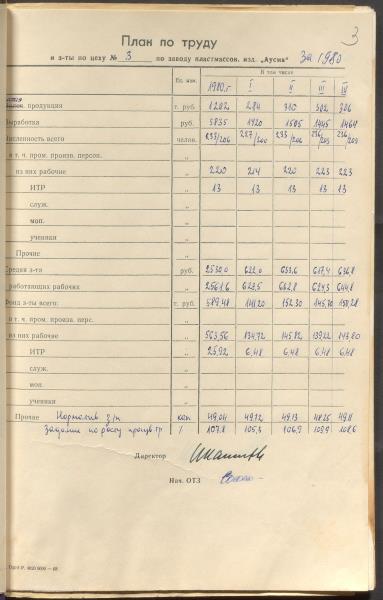 3
План по труду
и з-ты по цеху № 3 по заводу пластмассов. изд. „Аусма" За 1980
Ед. изм. В том числе
1980 г. I II III IV
продукция т. руб. 1282 284 310 302 386
Выработка руб. 5835 1420 1505 1445 1464
Численность всего челов. 233/206 227/200 233/206 236/209 236/209
в т. ч. пром. произв. персон. „
из них рабочие „ 220 214 220 223 223
ИТР „ 13 13 13 13 13
служ. „
моп. „
ученики „
Прочие „
Средняя з-та руб. 2530,0 622,0 653,6 617,4 636,8
работающих рабочих „ 2561,6 629,5 662,8 624,3 644,8
Фонд з-ты всего: т. руб. 589,48 141,20 152,30 145,70 150,28
в т. ч. пром. произв. перс. „
из них рабочие „ 563,56 134,72 145,82 139,22 143,80
ИТР „ 25,92 6,48 6,48 6,48 6,48
служ. „
моп. „
ученики „
Прочие Норматив з/п коп 49,04 49,72 49,13 48,25 49,11
Задание по росту произв. тр. % 107,8 105,3 106,9 109,9 108,6
Директор
Нач. ОТЗ